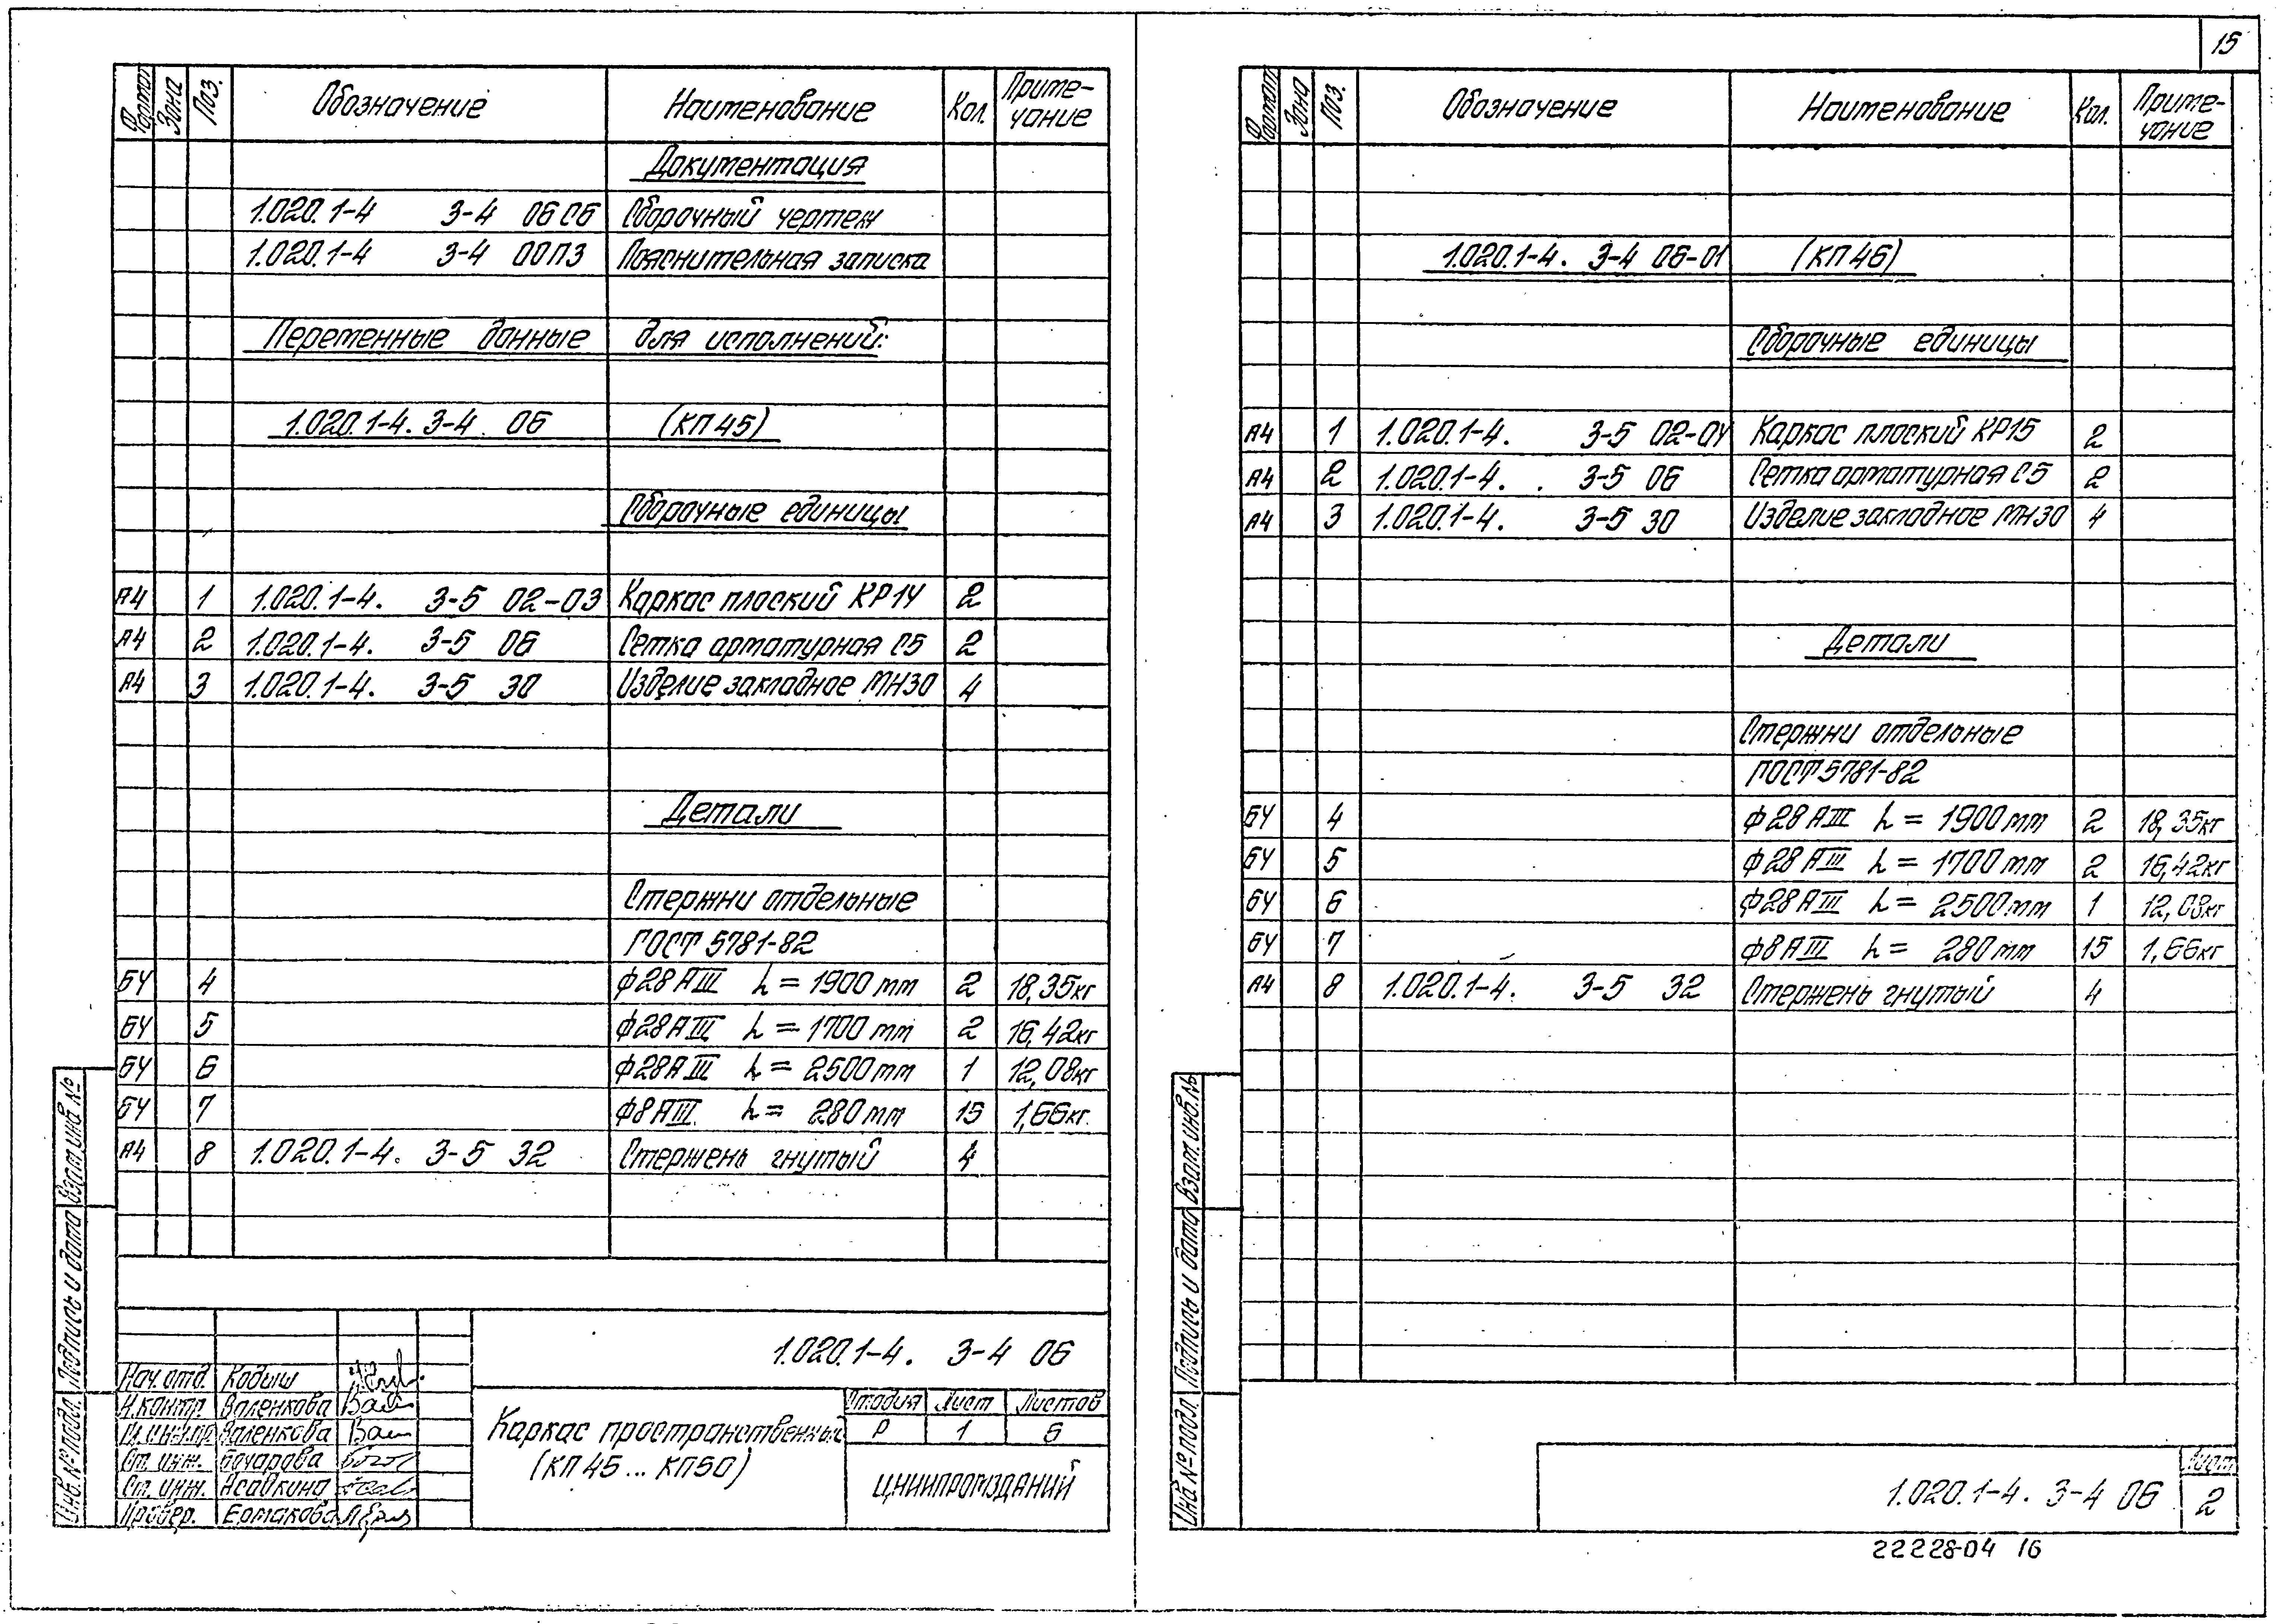 15
Формат Зона Поз. Обозначение Наименование Кол. Приме-
чание
Документация
1.020.1-4 3-4 06СБ Сборочный чертеж
1.020.1-4 3-4 00ПЗ Пояснительная записка
Переменные данные для исполнений:
1.020.1-4. 3-4 06 (КП45)
Сборочные единицы
А4 1 1.020.1-4. 3-5 02-03 Каркас плоский КР14 2
А4 2 1.020.1-4. 3-5 06 Сетка арматурная С5 2
А4 3 1.020.1-4. 3-5 30 Изделие закладное МН30 4
Детали
Стержни отдельные
ГОСТ 5781-82
БЧ 4 ф28АIII L = 1900мм 2 18,35кг
БЧ 5 ф28АIII L = 1700мм 2 16,42кг
БЧ 6 ф28АIII L = 2500мм 1 12,08кг
БЧ 7 ф8АIII L = 280мм 15 1,66кг.
А4 8 1.020.1-4. 3-5 32 Стержень гнутый 4
Инв. № подл. Подпись и дата Взам. инв. №
1.020.1-4. 3-4 06
Нач. отд. Кодыш
Н.контр. Валенкова
Гл. инж.пр Валенкова
Ст. инж. Бочарова
Ст. инж. Асавкина
Провер. Ермакова
Каркас пространственный
(КП45...КП50)
Стадия Лист Листов
Р 1 6
ЦНИИПРОМЗДАНИЙ
Формат Зона Поз. Обозначение Наименование Кол. Приме-
чание
1.020.1-4. 3-4 06-01 (КП46)
Сборочные единицы
А4 1 1.020.1-4. 3-5 02-04 Каркас плоский КР15 2
А4 2 1.020.1-4. 3-5 06 Сетка арматурная С5 2
А4 3 1.020.1-4. 3-5 30 Изделие закладное МН30 4
Детали
Стержни отдельные
ГОСТ 5781-82
БЧ 4 ф28АIII L = 1900мм 2 18,35кг
БЧ 5 ф28АIII L = 1700мм 2 16,42кг
БЧ 6 ф28АIII L = 2500мм 1 12,08кг
БЧ 7 ф8АIII L = 280мм 15 1,66кг
А4 8 1.020.1-4. 3-5 32 Стержень гнутый 4
Инв. № подл. Подпись и дата Взам. инв. №
1.020.1-4. 3-4 06
Лист
2
22228-04 16